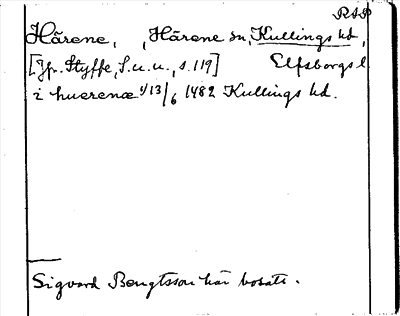 RAP
Härene, Härene sn, Kullings hd,
[Jfr. Styffe, S.u.u., s. 119] Elfsborgs l
i huerenæ 13/6 1482 Kullings hd.
Sigvard Bengtsson här bosatt.